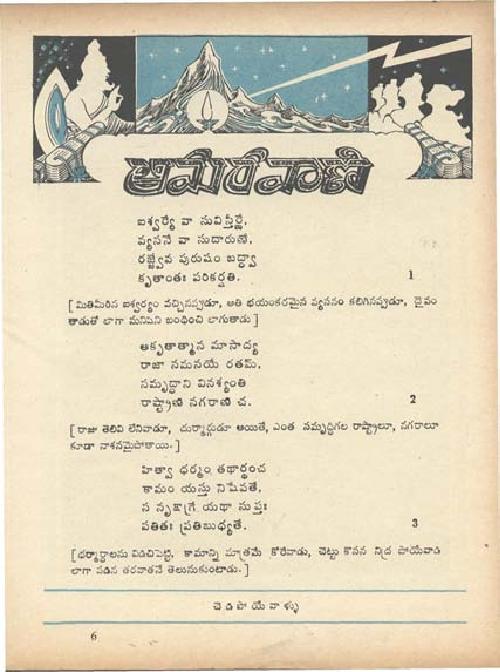 అమరవాణి
ఐశ్వర్యే వా సువిస్తీర్ణే,
వ్యసనే వా సుదారుణే,
రజ్జ్వేవ పురుషం బద్ధ్వా
కృతాంతః పరికర్షతి. 1
[మితిమీరిన ఐశ్వర్యం వచ్చినప్పుడూ, అతి భయంకరమైన వ్యసనం కలిగినప్పుడూ, దైవం
తాడుతో లాగా మనిషిని బంధించి లాగుతాడు]
అకృతాత్మాన మాసాద్య
రాజా నమనయే రతమ్,
సమృద్ధాని వినశ్యంతి
రాష్ట్రాణి నగరాణి చ. 2
[రాజు తెలివి లేనివాడూ, దుర్మార్గుడూ అయితే, ఎంత సమృద్ధిగల రాష్ట్రాలూ, నగరాలూ
కూడా నాశనమైపోతాయి.]
హిత్వా ధర్మం తథార్థంచ
కామం యస్తు నిషేవతే,
స వృక్షాగ్రే యథా సుప్తః
పతితః ప్రతిబుధ్యతే. 3
[ధర్మార్థాలను విడిచిపెట్టి, కామాన్ని మాత్రమే కోరేవాడు, చెట్టు కొసన నిద్ర పోయేవాడి
లాగా పడిన తరవాతనే తెలుసుకుంటాడు.]
చెడిపోయేవాళ్ళు
6